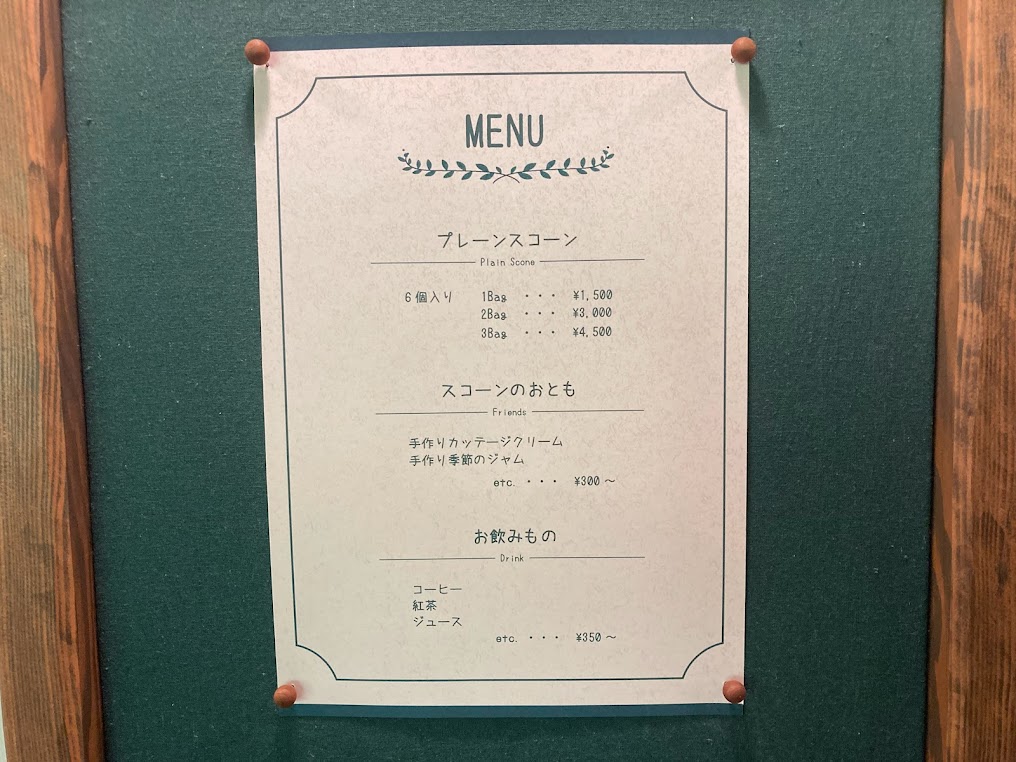 MENU
プレーンスコーン
Plain Scone
6個入り 1Bag ・・・ ¥1,500
2Bag ・・・ ¥3,000
3Bag ・・・ ¥4,500
スコーンのおとも
Friends
手作りカッテージクリーム
手作り季節のジャム
etc. ・・・ ¥300～
お飲みもの
Drink
コーヒー
紅茶
ジュース
etc. ・・・ ¥350～